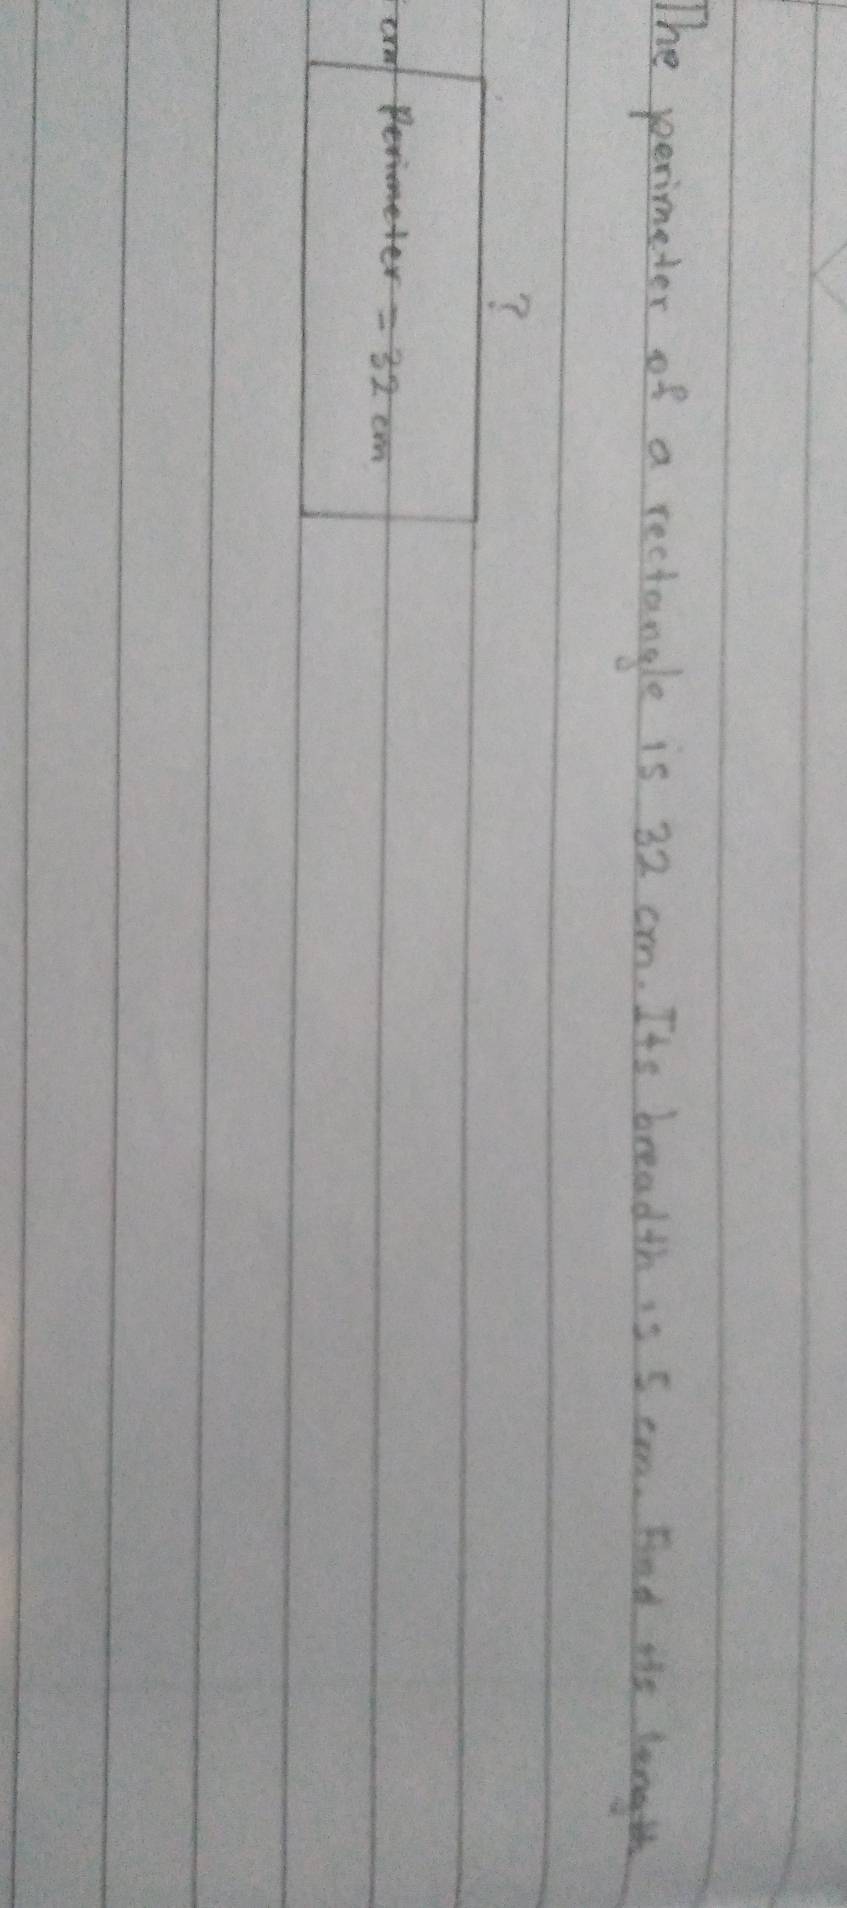 The perimeter of a rectangle is 32 cm. Its breadth is 5 cm. Find its length
?
cm Perimeter = 32 cm